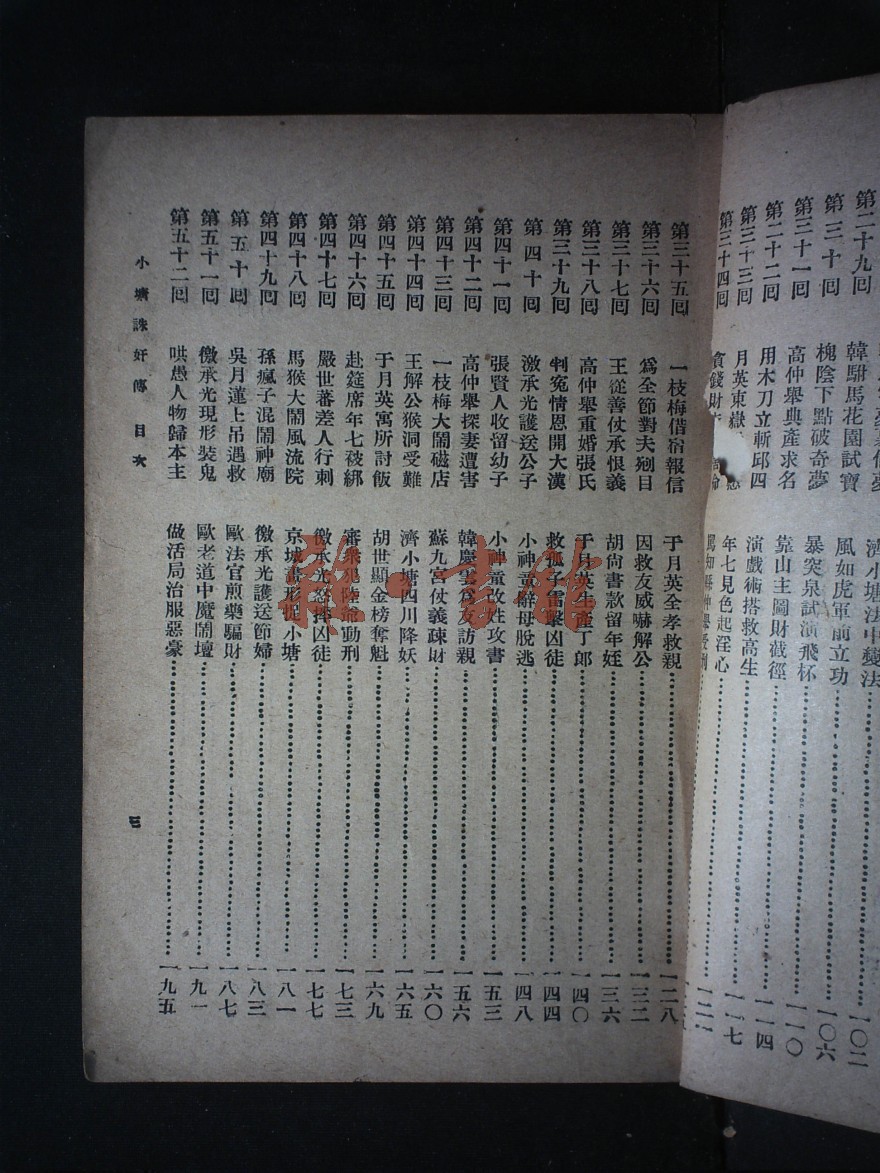 第二十九回 韓駙馬花園試寶 濟小塘法中變法 一〇二
第三十回 槐陰下點破奇夢 風如虎軍前立功 一〇六
第三十一回 高仲舉典產求名 暴突泉試演飛杯 一一〇
第三十二回 用木刀立斬邱四 靠山主圖財截徑 一一四
第三十三回 月英東嶽 演戲術搭救高生 一一七
第三十四回 貪錢財 年七見色起淫心
第三十五回 一枝梅借宿報信 于月英全孝救親 一二八
第三十六回 爲全節對夫剜目 因救友威嚇解公 一三二
第三十七回 王從善仗承恨義 胡尙書款留年姪 一三六
第三十八回 高仲舉重婚張氏 于月英生產丁郎 一四〇
第三十九回 判冤情恩開大漢 救孤子雷擊凶徒 一四四
第四十回 激承光護送公子 小神童辭母脫逃 一四八
第四十一回 張賢人收留幼子 小神童改姓攻書 一五三
第四十二回 高仲舉探妻遭害 韓慶雲爲友訪親 一五六
第四十三回 一枝梅大鬧磁店 蘇九宮仗義疎財 一六〇
第四十四回 王解公猴洞受難 濟小塘四川降妖 一六五
第四十五回 于月英寓所討飯 胡世顯金榜奪魁 一六九
第四十六回 赴筵席年七被綁 審衆 動刑 一七三
第四十七回 嚴世蕃差人行刺 徼承光 摔凶徒 一七七
第四十八回 馬猴大鬧風流院 京城畫形捉小塘 一八一
第四十九回 孫瘋子混鬧神廟 徼承光護送節婦 一八三
第五十回 吳月蓮上吊遇救 歐法官煎藥騙財 一八七
第五十一回 徼承光現形裝鬼 歐老道中魔鬧壇 一九一
第五十二回 哄愚人物歸本主 做活局治服惡豪 一九五
小塘誅奸傳 目次
三